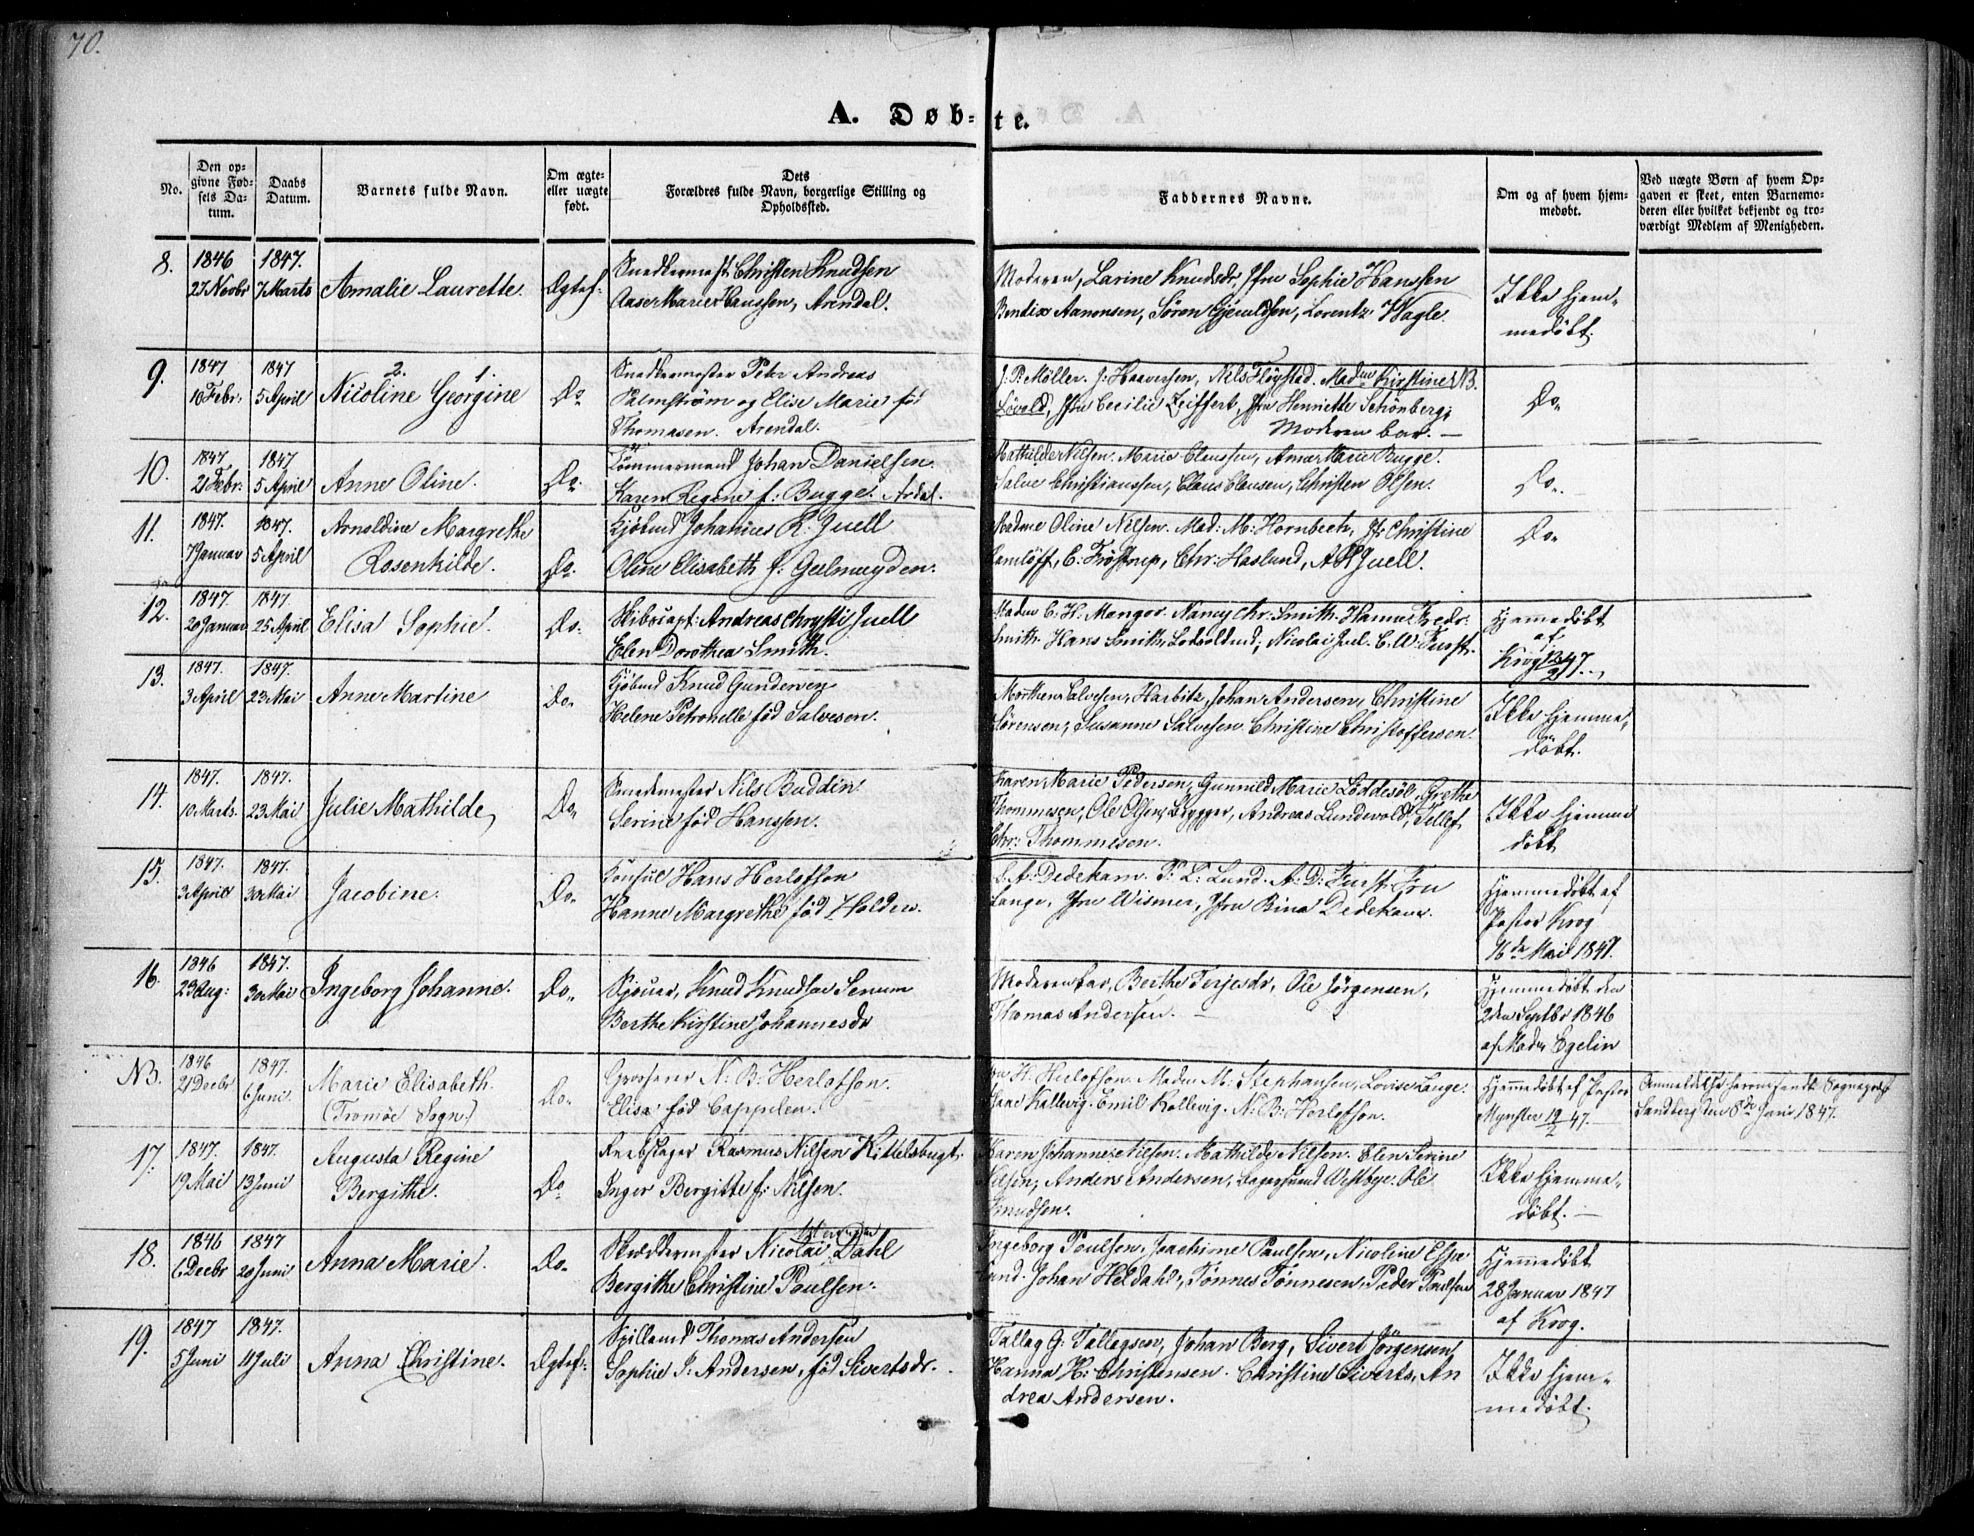 70.
A. Døb-te.
No.
Den opgivne Fødsels Datum.
Daabs Datum.
Barnets fulde Navn.
Om ægte eller uægte født.
Dets Forældres fulde Navn, borgerlige Stilling og Opholdssted.
Faddernes Navne.
Om og af hvem hjemmedøbt.
Ved uægte Børn af hvem Opgaven er skeet, enten Barnemoderen eller hvilket bekjendt og troværdigt Medlem af Menigheden.
8. 1846 27 Novbr 1847. 7 Marts Amalie Laurette. Ægtef.
Snedkermest: Christen Knudsen
Aase Marie Hanssen, Arendal.
Moderen, Larine Knudsdr, Jfru Sophie Hanssen
Bendix Aanonsen, Søren Gjeruldsen, Lorentz Wagle.
Ikke hjem-
medøbt.
9. 1847 10 Febr: 1847 5 April Nicoline 2. Georgine 1. Do
Snedkermester Peter Andreas
Palmstrøm og Elise Marie fød
Thomasen. Arendal.
J. P. Møller. J. Haaversen, Nils Fløystad. Madm Kirstine B.
Løvold, Jfru Cecilie Zeiffert, Jfru Henriette Schönberg,
Moderen bar. —
Do.
10. 1847 21 Febr: 1847 5 April Anne Oline. Do.
Tømmermand Johan Danielsen.
Karen Regine f: Bugge. Ardal.
Mathilde Nilsen. Marie Claussen, Anne Marie Bugge.
Salve Christianssen, Claus Clausen, Christen Olsen.
Do.
11. 1847. 7 Januar 1847. 5 April Arnoldine Margrethe
Rosenkilde. Do.
Kjøbmd Johannes R. Juell
Oline Elisabeth f: Geelmuyden.
Madme Oline Nilsen. Mad: M: Hornbech, Jfr Christine
Ramløff, C. Frøstrup, Chr: Haslund, A R Juell.
Do.
12. 1847. 20 Januar 1847. 25 April Elisa Sophie. Do.
Skibscapt: Andreas Chrysti Juell
Elen Dorothea Smith.
Madm C. H. Mangor. Nancy Chr: Smith. Hanne Fredr:
Smith. Hans Smith, Nicolai Juel. C. W. Furst.
Hjemmedøbt
af
Krog 47.
13. 1847. 3 April 1847. 23 Mai Anne Martine Do.
Kjøbmd Knud Gundersen
Helene Petronelle fød Salvesen.
Morthen Salvesen, Harbitz, Johan Andersen, Christine
Sørensen, Susanne Salvesen. Christine Christoffersen.
Ikke hjemme-
døbt.
14. 1847. 10 Marts. 1847. 23 Mai Julie Mathilde, Do.
Smedemester Nils Buddin
Serine fød Hanssen.
Karen Marie Pedersen, Gunnild Marie Løddesøl, Grethe
Thommesen, Ole Olsen Brygger, Andreas Lundevold, Tellef
Chr: Thommesen.
Ikke hjemme
døbt
15. 1847. 3 April 1847. 30 Mai Jacobine. Do.
Konsul Hans Herlofson
Hanne Margrethe fød Holden.
C. F: Dedekam. P. L: Lund. A. D: Furst. Fru
Lange, Jfru Wismer, Jfru Rina Dedekam.
Hjemmedøbt af
Pastor Krog
16de Mai 1847.
16. 1846 23 Aug: 1847. 30 Mai Ingeborg Johanne. Do.
Sjouer, Knud Knudsen Senum
Berthe Kirstine Johannesdr
Moderen bar, Berthe Terjesdr, Ole Jørgensen,
Thomas Andersen. —
Hjemmedøbt den
2den Septbr 1846
af Madm Egelin
NB. 1846 21 Decbr 1847. 6 Juni. Marie Elisabeth.
(Tromøe Sogn.) Do.
Grosserer N. B: Herlofson.
Elisa fød Cappelen.
Fru H. Herlofson. Madm M: Stephansen, Lovise Lange.
Isaac Kallevig. Emil Kallevig. N. B: Herlofson.
Hjemmedøbt af Pastor
Mynster 19/2 47.
Anmeldelse herom sendt Sogneprest
Sandberg den 8de Juni 1847.
17. 1847. 19 Mai 1847. 13 Juni Augusta Regine
Bergithe. Do
Rasmus Nilsen Kittelsbugt.
Inger Bergitte f: Nilsen.
Karen Johanne Nilsen. Mathilde Nilsen. Elen Serine
Nilsen, Anders Andersen, Westbye. Ole
Knudsen.
Ikke hjemme-
døbt. —
18. 1846 6 Decbr 1847 20 Juni Anna Marie. Do.
Skræddermester Nicolai Dahl
Bergithe Christine Poulsen.
Ingeborg Poulsen, Joachime Paulsen, Nicoline Espe
land. Johan Heldahl, Tønnes Tønnesen, Peder Poulsen
Hjemmedøbt
28 Januar 1847
af Krog.
19. 1847 5 Juni 1847. 11 Juli Anna Christine. Ægtef:
Spillemd Thomas Andersen
Sophie J. Andersen, fød Sivertsdr.
Tallag G. Tallagsen, Johan Berg, Sivert Jørgensen,
Hanna H: Christensen. Christine Siverts, An
drea Andersen.
Ikke hjem-
medøbt.